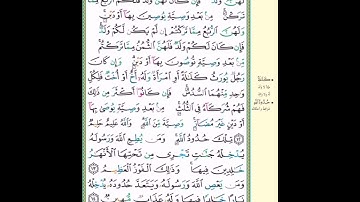 لَهُنَّ وَلَدٌ فَإِن كَانَ لَهُنَّ وَلَدٌ فَلَكُمُ ٱلرُّبُعُ مِمَّا
تَرَكْنَ مِنۢ بَعْدِ وَصِيَّةٍ يُوصِينَ بِهَآ أَوْ دَيْنٍ
وَلَهُنَّ ٱلرُّبُعُ مِمَّا تَرَكْتُمْ إِن لَّمْ يَكُن لَّكُمْ وَلَدٌ
فَإِن كَانَ لَكُمْ وَلَدٌ فَلَهُنَّ ٱلثُّمُنُ مِمَّا تَرَكْتُم
مِّنۢ بَعْدِ وَصِيَّةٍ تُوصُونَ بِهَآ أَوْ دَيْنٍ وَإِن كَانَ
رَجُلٌ يُورَثُ كَلَٰلَةً أَوِ ٱمْرَأَةٌ وَلَهُۥٓ أَخٌ أَوْ أُخْتٌ فَلِكُلِّ
وَٰحِدٍ مِّنْهُمَا ٱلسُّدُسُ فَإِن كَانُوٓا۟ أَكْثَرَ مِن ذَٰلِكَ
فَهُمْ شُرَكَآءُ فِى ٱلثُّلُثِ مِنۢ بَعْدِ وَصِيَّةٍ يُوصَىٰ بِهَآ
أَوْ دَيْنٍ غَيْرَ مُضَآرٍّ وَصِيَّةً مِّنَ ٱللَّهِ وَٱللَّهُ عَلِيمٌ حَلِيمٌ
١٢ تِلْكَ حُدُودُ ٱللَّهِ وَمَن يُطِعِ ٱللَّهَ وَرَسُولَهُۥ
يُدْخِلْهُ جَنَّٰتٍ تَجْرِى مِن تَحْتِهَا ٱلْأَنْهَٰرُ
خَٰلِدِينَ فِيهَا وَذَٰلِكَ ٱلْفَوْزُ ٱلْعَظِيمُ ١٣
وَمَن يَعْصِ ٱللَّهَ وَرَسُولَهُۥ وَيَتَعَدَّ حُدُودَهُۥ يُدْخِلْهُ
نَارًا خَٰلِدًا فِيهَا وَلَهُۥ عَذَابٌ مُّهِينٌ ١٤